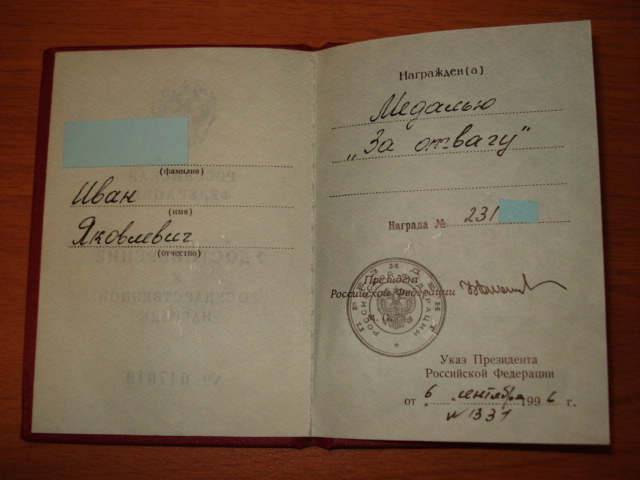 (фамилия)
Иван
(имя)
Яковлевич
(отчество)
Награжден(а)
Медалью
„За отвагу"
Награда № 231
Президент
Российской Федерации
Указ Президента
Российской Федерации
от 6 сентября 1996 г.
N 1331